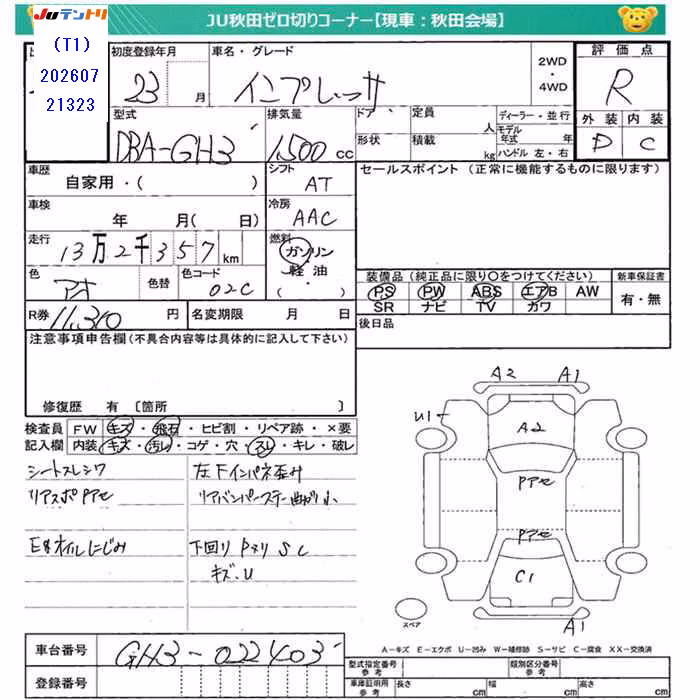 JUテントリ
JU秋田ゼロ切りコーナー【現車：秋田会場】
(T1)
202607
21323
初度登録年月
23 月
車名・グレード
インプレッサ
2WD
・
4WD
評価点
R
外装 内装
D C
型式
DBA-GH3
排気量
1,500 cc
ドア
形状
定員 人
積載 kg
ディーラー・並行
モデル年式 年
ハンドル 左・右
車歴
自家用・( )
シフト
AT
セールスポイント (正常に機能するものに限ります)
車検
年 月( 日)
冷房
AAC
走行
13万2千357 km
燃料
ガソリン
軽油
・
( )
色
アオ
色替
色コード
02C
装備品 (純正品に限り○をつけてください)
PS PW ABS エアB AW
SR ナビ TV カワ
新車保証書
有・無
R券 11,310 円
名変期限 月 日
後日品
注意事項申告欄(不具合内容等は具体的に記入して下さい)
修復歴 有 〔箇所 〕
検査員
記入欄
FW キズ・飛石・ヒビ割・リペア跡・×要
内装 キズ・汚レ・コゲ・穴・スレ・キレ・破レ
シートスレシワ
リアスポPアセ
E&オイルにじみ
左下インパネ歪み
リアバンパーステー曲がり小
下回りPメリSC
キズ・U
A2 A1
U1
A2
Pアセ
Pアセ
C1
A1
スペア
A-キズ E-エクボ U-凹み W-補修跡 S-サビ C-腐食 XX-交換済
車台番号
GH3-022403
登録番号
型式指定番号 参考
類別区分番号 参考
車庫証明用 参考
長さ cm
幅 cm
高さ cm